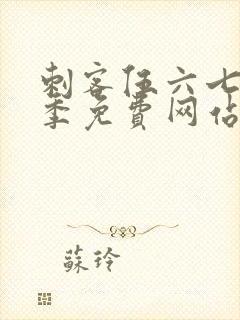 刺客伍六七
季免費网站
蘇玲